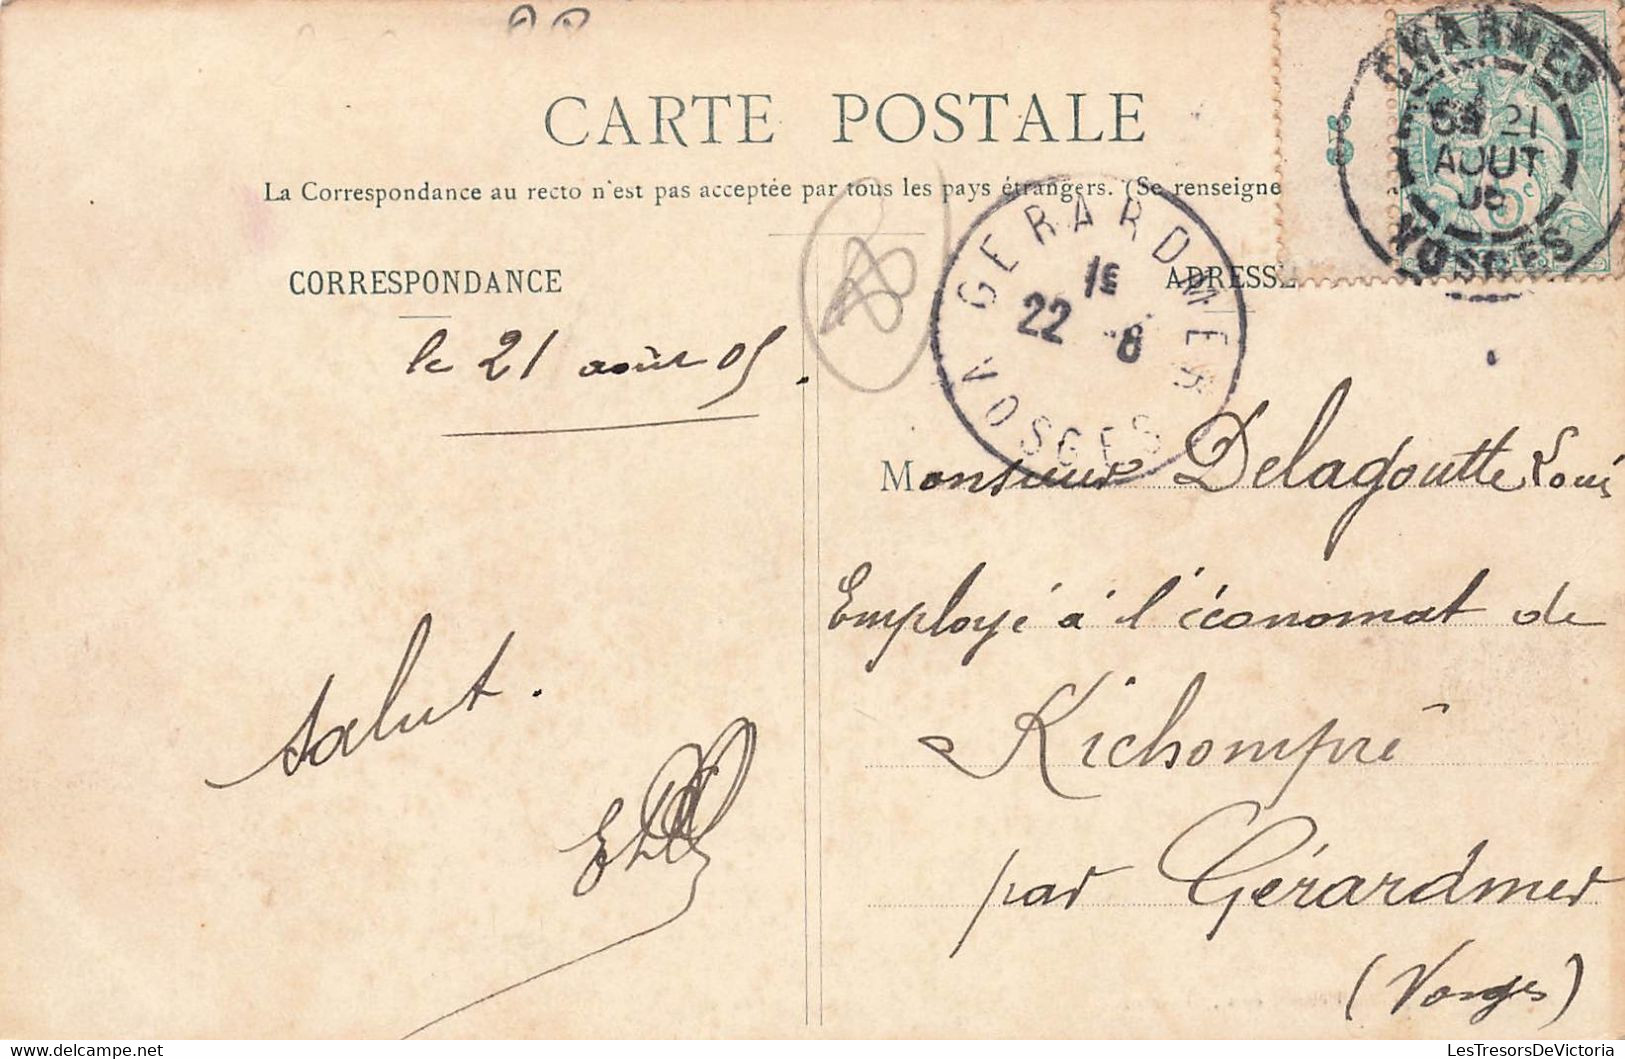 CARTE POSTALE
La Correspondance au recto n'est pas acceptée par tous les pays étrangers. (Se renseigne
CORRESPONDANCE
ADRESSE
CHARMES
21
AOUT
05
VOSGES
GERARDMER
1E
22 -8
VOSGES
le 21 août 05.
Salut.
Monsieur Delagoutte Louis
Employé à l'économat de
Kichompré
par Gérardmer
(Vosges)
LesTresorsDeVictoria